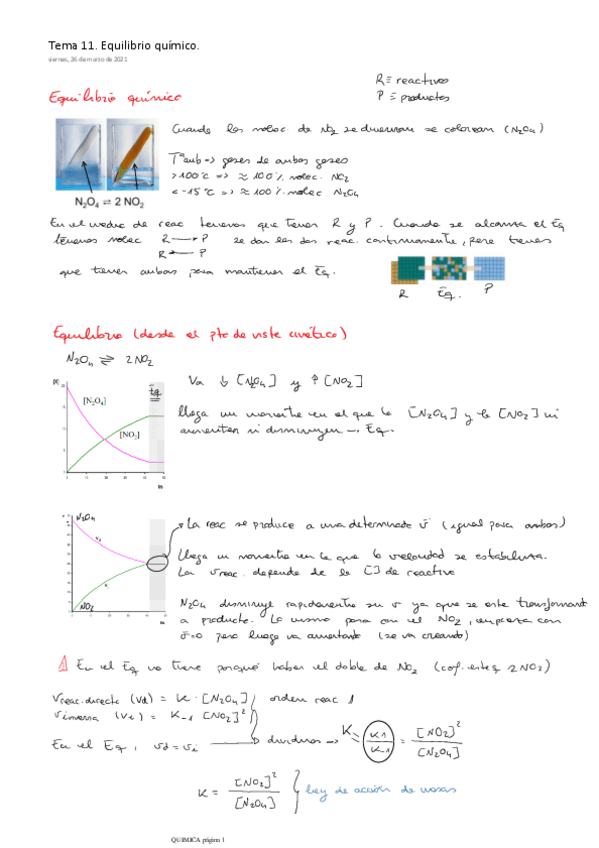 Tema 11. Equilibrio químico.
viernes, 26 de marzo de 2021
R ≡ reactivo
P ≡ productos
Equilibrio químico
Cuando las molec de NO2 se dimerizan se colorean (N2O4)
N2O4 ⇌ 2 NO2
Tª amb => gases de ambos gases
> 100°C => ≈ 100% molec. NO2
< -15°C => ≈ 100% molec N2O4
En el medio de reac tenemos que tener R y P. Cuando se alcanza el Eq
tenemos molec R → P se dan las dos reac. continuamente, pero tienes
R ← P
que tener ambos para mantener el Eq.
R Eq. P
Equilibrio (desde el pto de vista cinético)
N2O4 ⇌ 2NO2
Eq
[N2O4]
[NO2]
Va ↓ [N2O4] y ↑ [NO2]
llega un momento en el que la [N2O4] y la [NO2] ni
aumentan ni disminuyen → Eq.
N2O4
NO2
La reac se produce a una determinada v (igual para ambos)
llega un momento en la que la velocidad se estabiliza.
La v reac. depende de la [] de reactivo
N2O4 disminuye rapidamente su v ya que se esta transformant
a producto. Lo mismo pasa con el NO2, empieza con
v=0 pero luego va aumentando (se va creando)
⚠ En el Eq no tiene porqué haber el doble de NO2 (cof. esteq 2NO2)
v reac. directa (vd) = K · [N2O4] orden reac 1
v inversa (vi) = K-1 [NO2]²
En el Eq, vd = vi → dividimos → K K1/K-1 = [NO2]²/[N2O4]
K = [NO2]²/[N2O4] ley de acción de masas
QUIMICA página 1